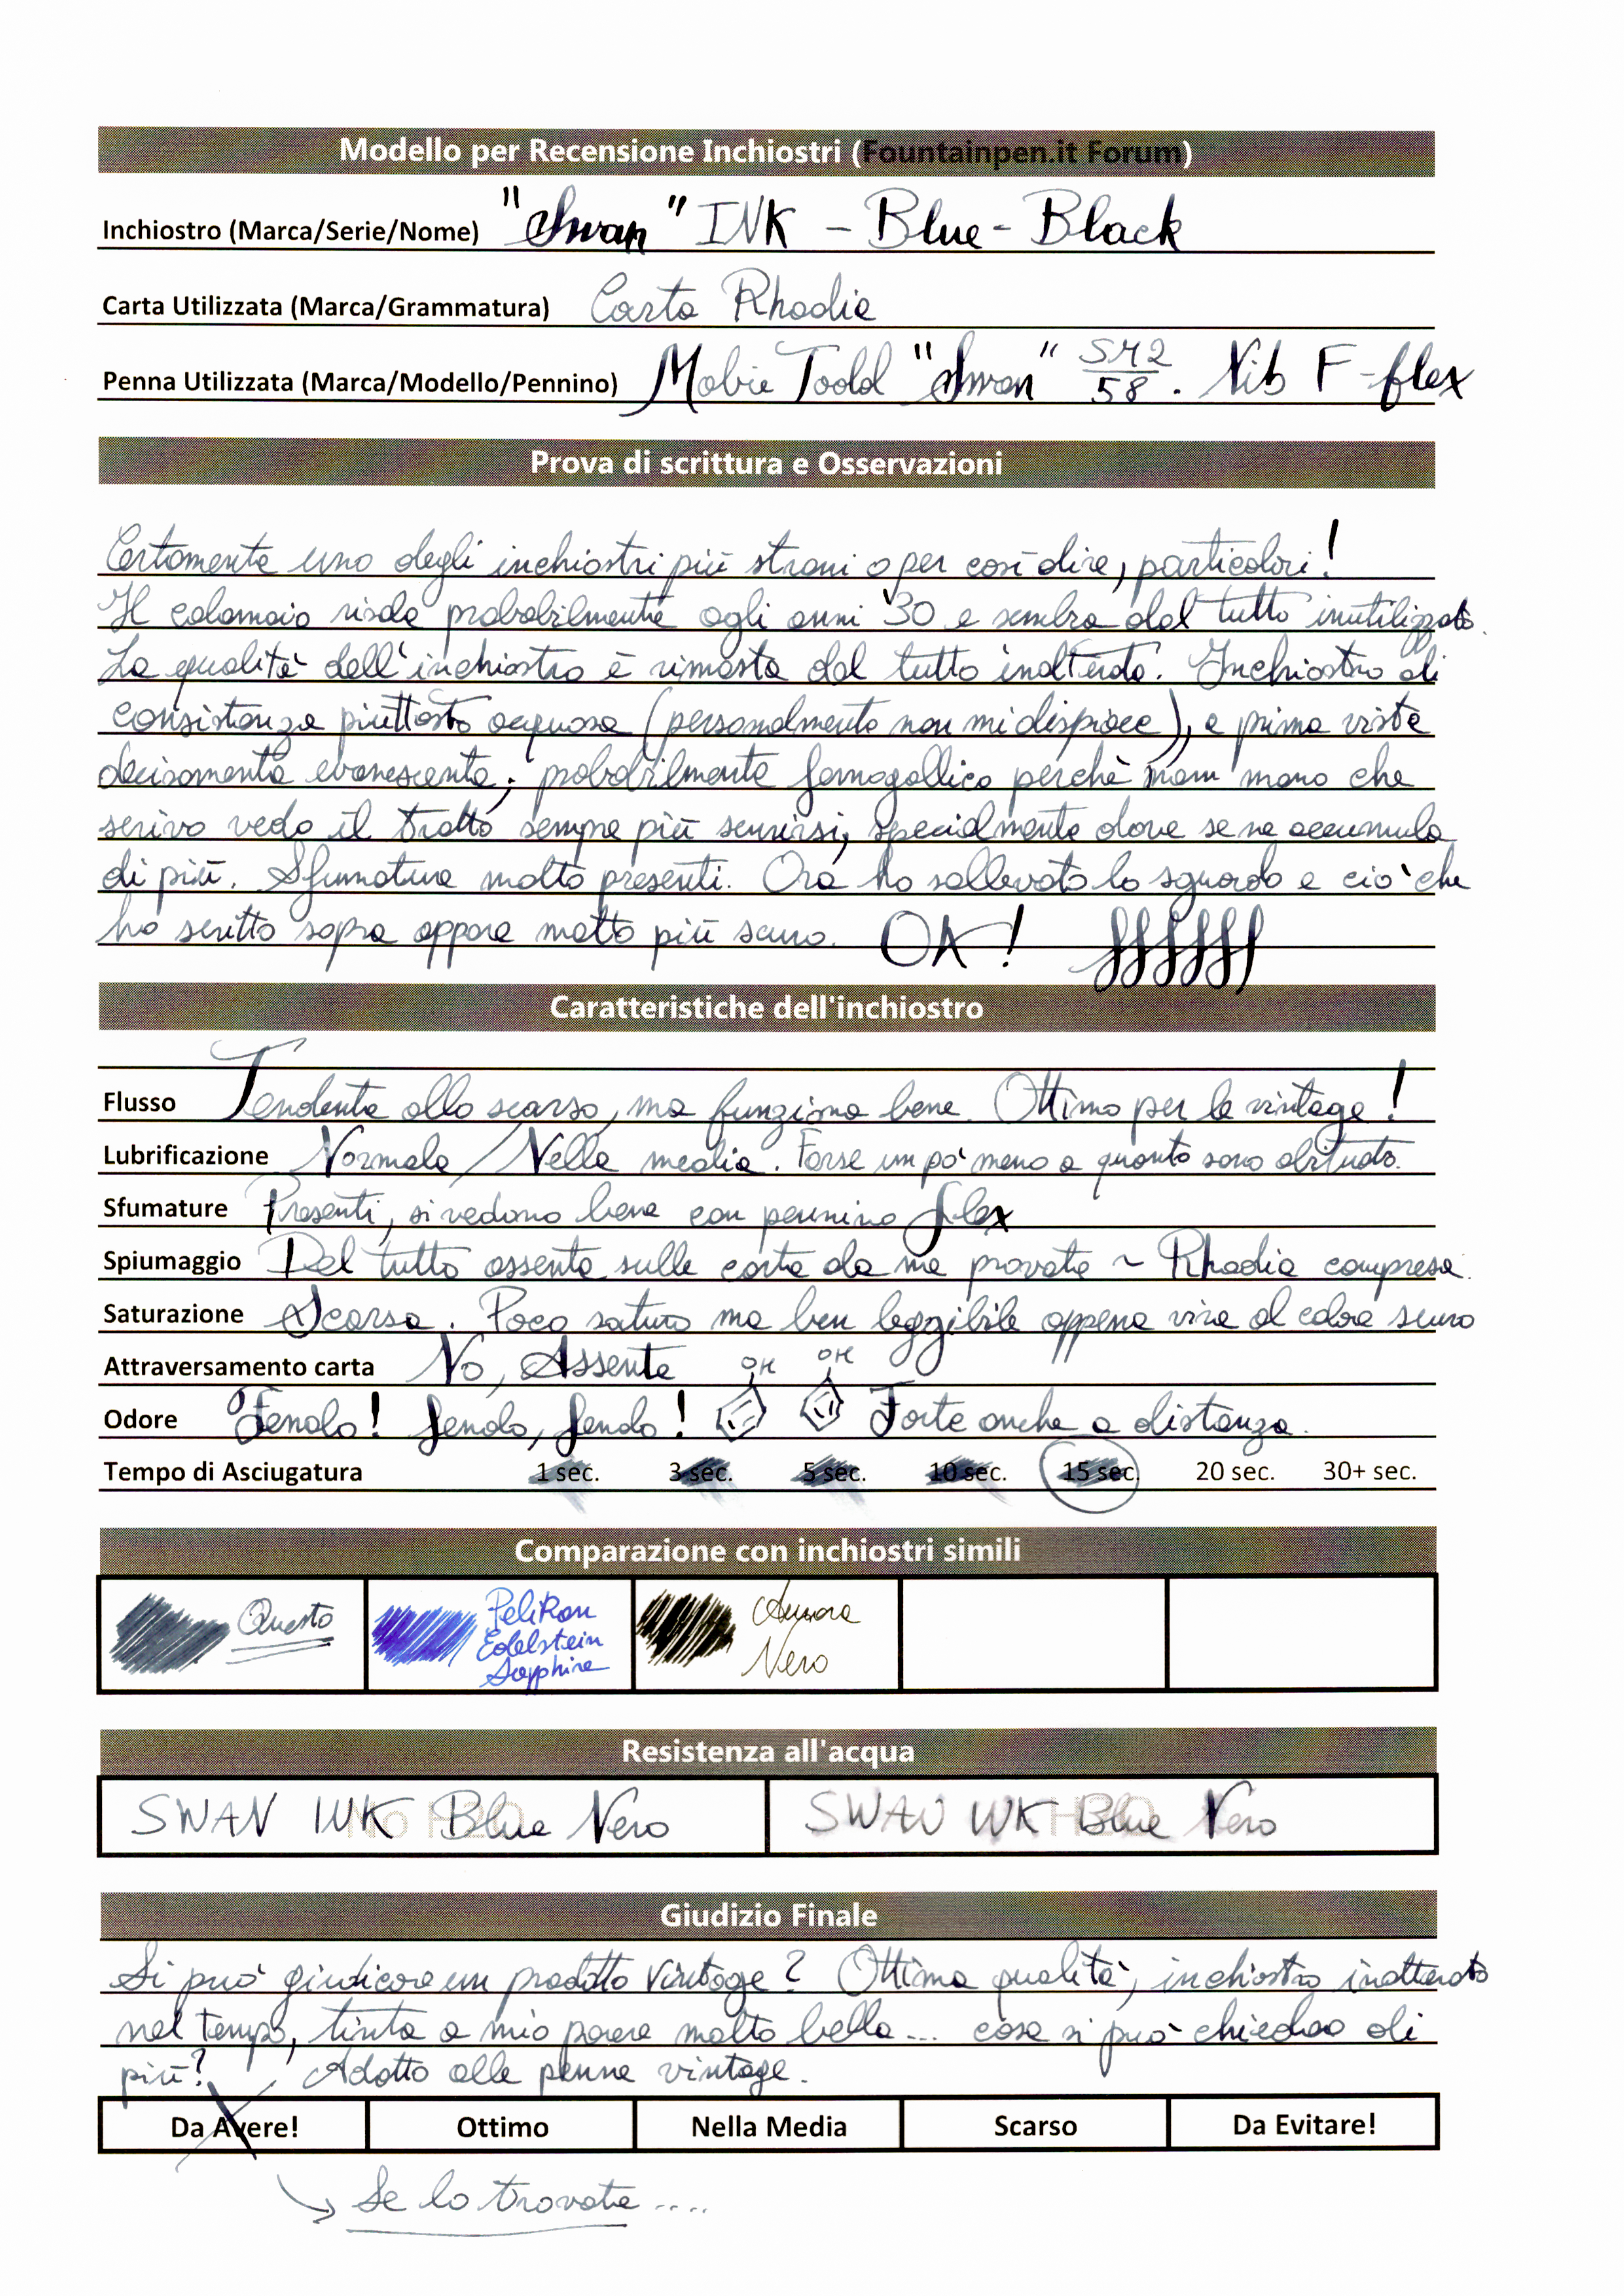 Modello per Recensione Inchiostri (Fountainpen.it Forum)
Inchiostro (Marca/Serie/Nome) "Swan" INK - Blue-Black
Carta Utilizzata (Marca/Grammatura) Carta Rhodia
Penna Utilizzata (Marca/Modello/Pennino) Mabie Todd "Swan" SM2/58. Nib F-flex
Prova di scrittura e Osservazioni
Certamente uno degli inchiostri più strani o per così dire, particolari!
Il calamaio risale probabilmente agli anni '30 e sembra del tutto inutilizzato.
La qualità dell'inchiostro è rimasta del tutto inalterata. Inchiostro di
consistenza piuttosto acquosa (personalmente non mi dispiace), a prima vista
decisamente evanescente; probabilmente ferrogallico perchè man mano che
scrivo vedo il tratto sempre più scurirsi, specialmente dove se ne accumula
di più. Sfumature molto presenti. Ora ho sollevato lo sguardo e ciò che
ho scritto sopra appare molto più scuro. OK!
Caratteristiche dell'inchiostro
Flusso Tendente allo scarso, ma funziona bene. Ottimo per le vintage!
Lubrificazione Normale / Nella media. Forse un po' meno a quanto sono abituato.
Sfumature Presenti, si vedono bene con pennino flex
Spiumaggio Del tutto assente sulle carte da me provate ~ Rhodia compresa.
Saturazione Scarsa. Poco saturo ma ben leggibile appena vira al colore scuro
Attraversamento carta No, Assente
OH OH
Odore Fenolo! fenolo, fenolo! Forte anche a distanza.
Tempo di Asciugatura 1 sec. 3 sec. 5 sec. 10 sec. 15 sec. 20 sec. 30+ sec.
Comparazione con inchiostri simili
Questo
Pelikan
Edelstein
Sapphire
Aurora
Nero
Resistenza all'acqua
SWAN INK Blue Nero
No H2O
SWAN INK Blue Nero
H2O
Giudizio Finale
Si può giudicare un prodotto vintage? Ottima qualità, inchiostro inalterato
nel tempo, tinta a mio parere molto bella... cosa si può chiedere di
più? Adatto alle penne vintage.
Da Avere! Ottimo Nella Media Scarso Da Evitare!
Se lo trovate ....